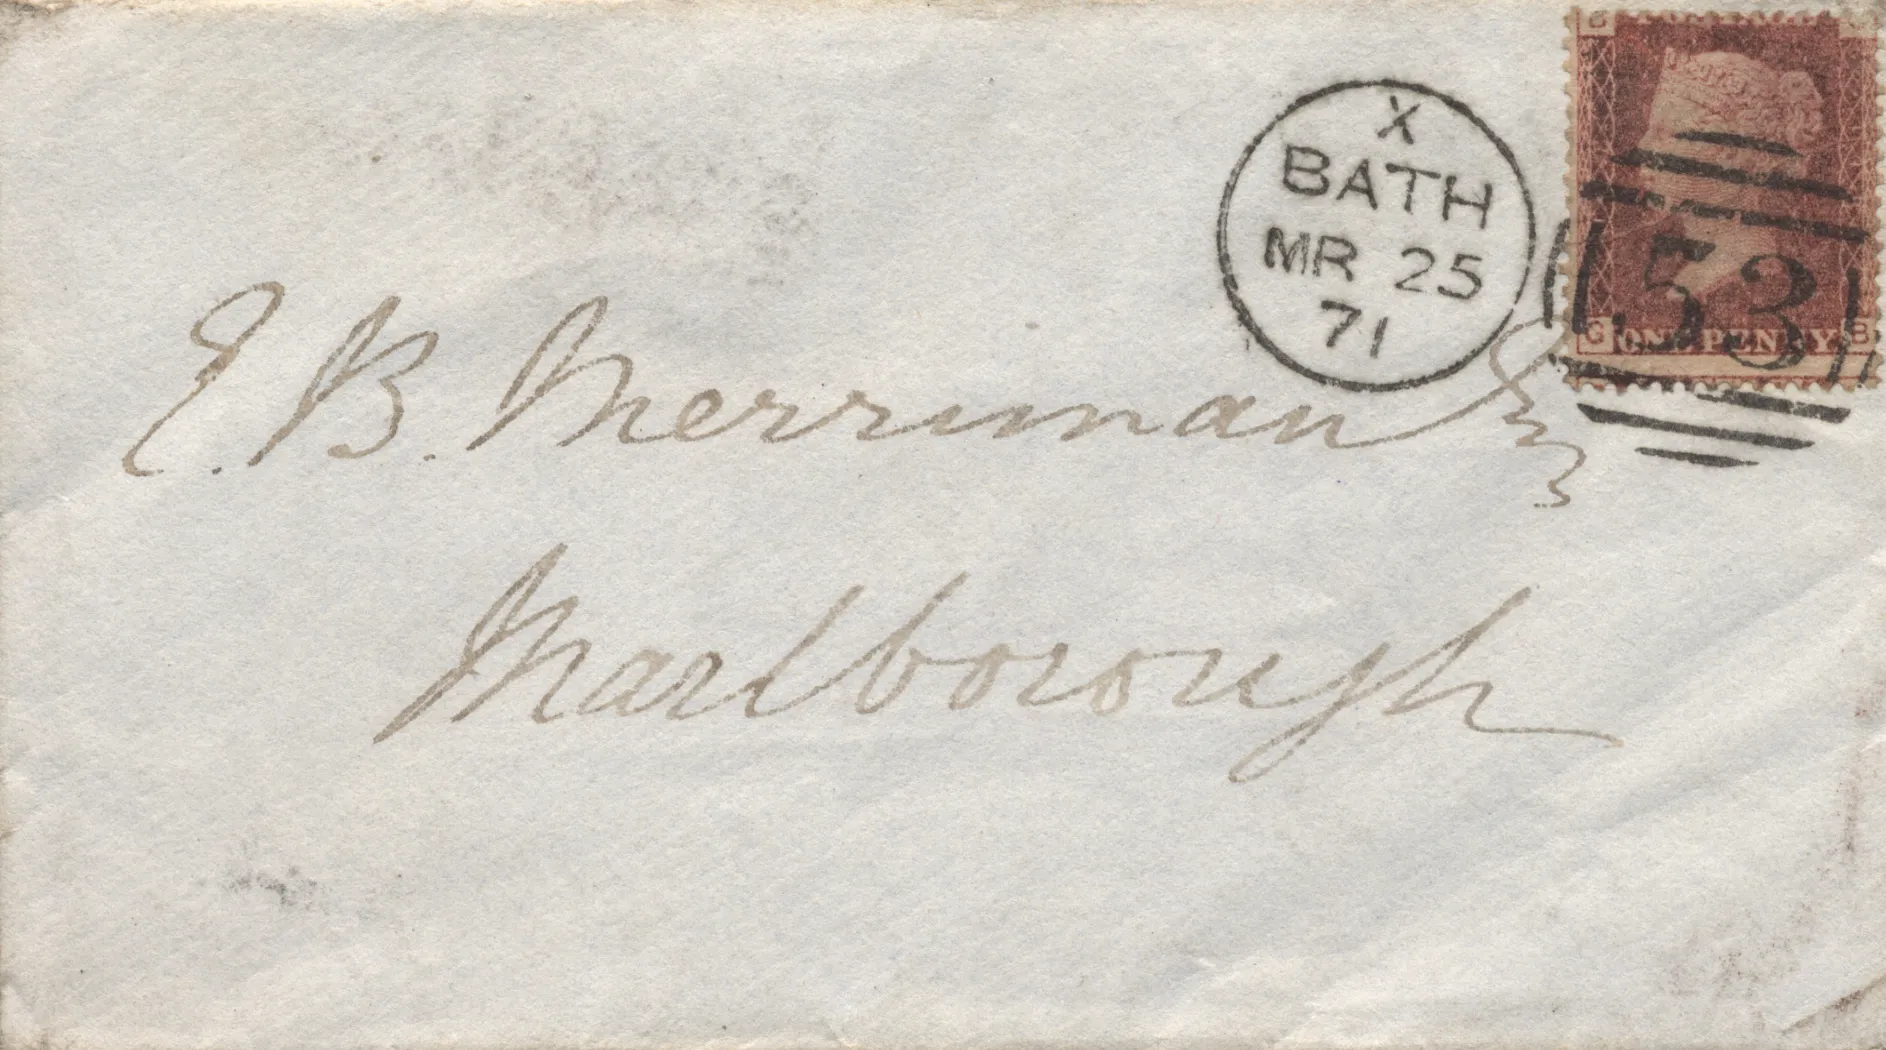 X
BATH
MR 25
71
53
G ONE PENNY B
E. B. Merriman Esq
Marlborough